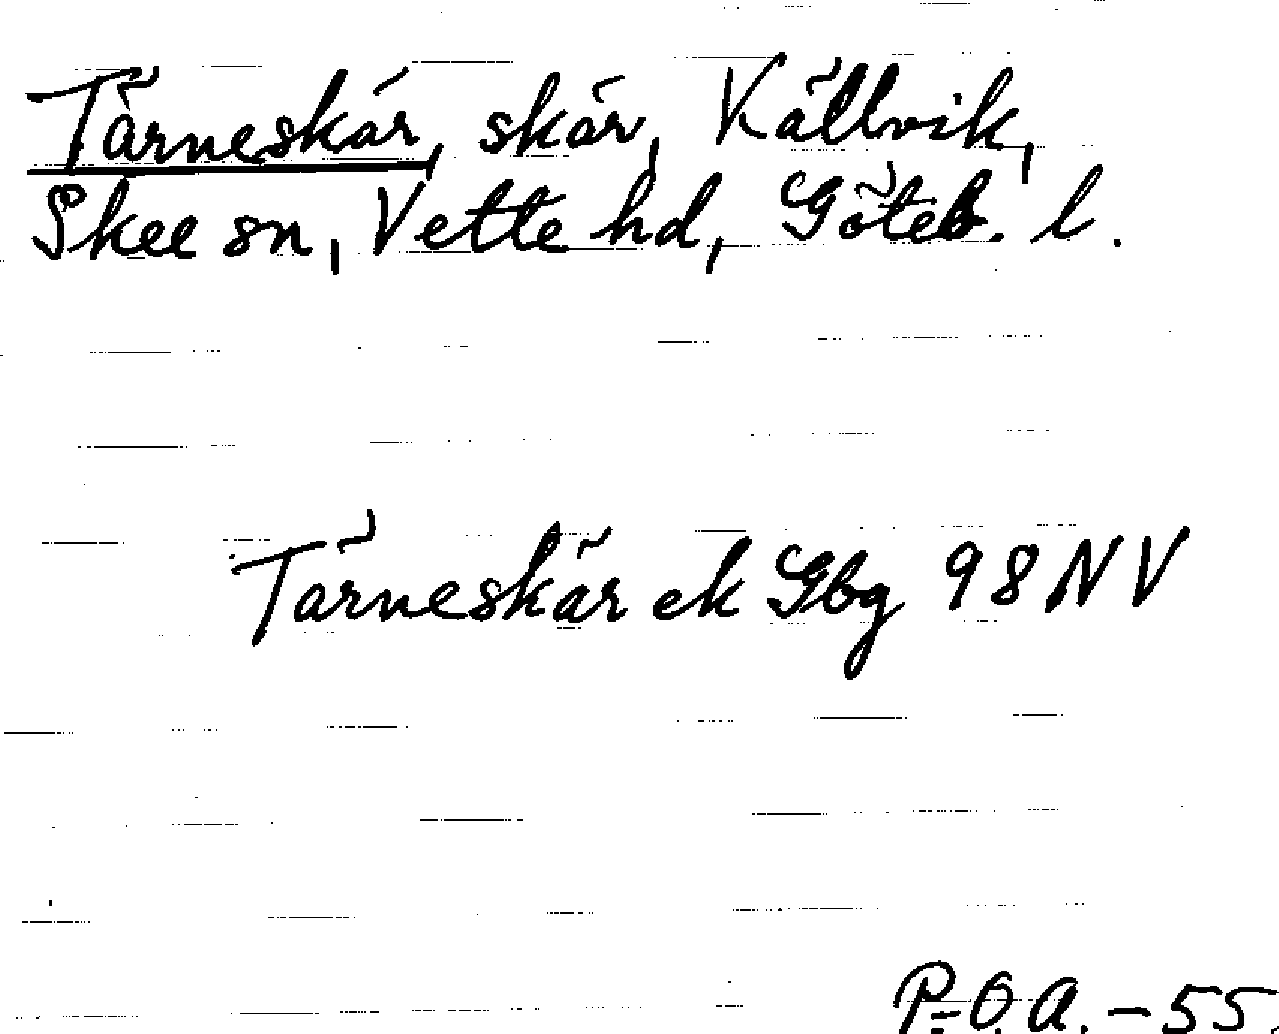 Tärneskär, skär, Källvik,
Skee sn, Vette hd, Göteb. l.
Tärneskär ek Gbg 98 NV
P.O.A. - 55.